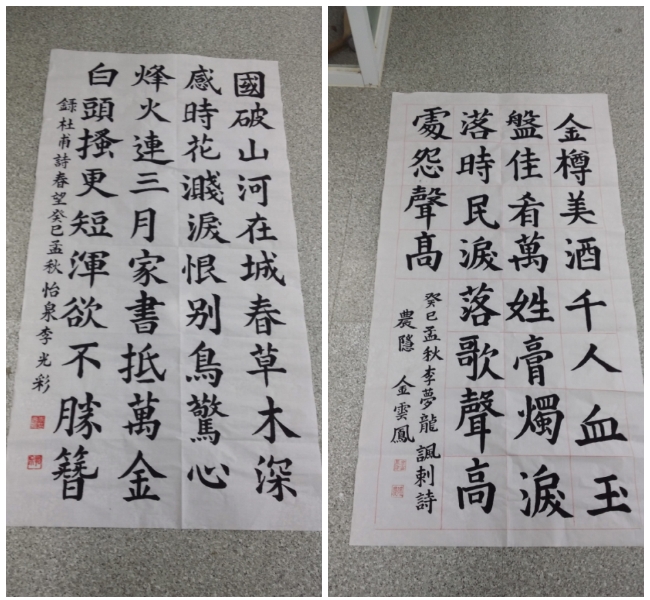 國破山河在城春草木深
感時花濺淚恨別鳥驚心
烽火連三月家書抵萬金
白頭搔更短渾欲不勝簪
錄杜甫詩春望癸巳孟秋怡泉李光彩
金樽美酒千人血玉
盤佳肴萬姓膏燭淚
落時民淚落歌聲高
處怨聲高
癸巳孟秋李夢龍諷刺詩
農隱 金雲鳳